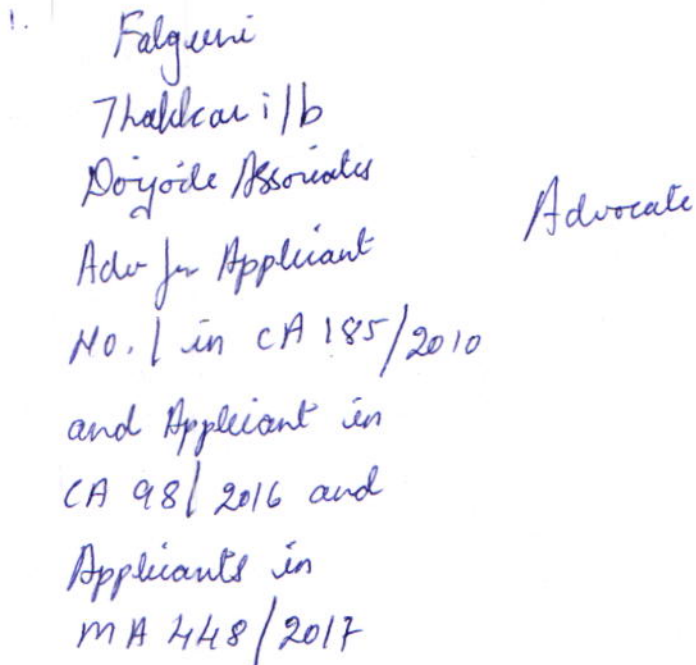 1. Falguni
Thakkar i/b
Doijode Associates
Advocate
Adv for Applicant
No. 1 in CA 185/2010
and Applicant in
CA 98/2016 and
Applicants in
MA 448/2017